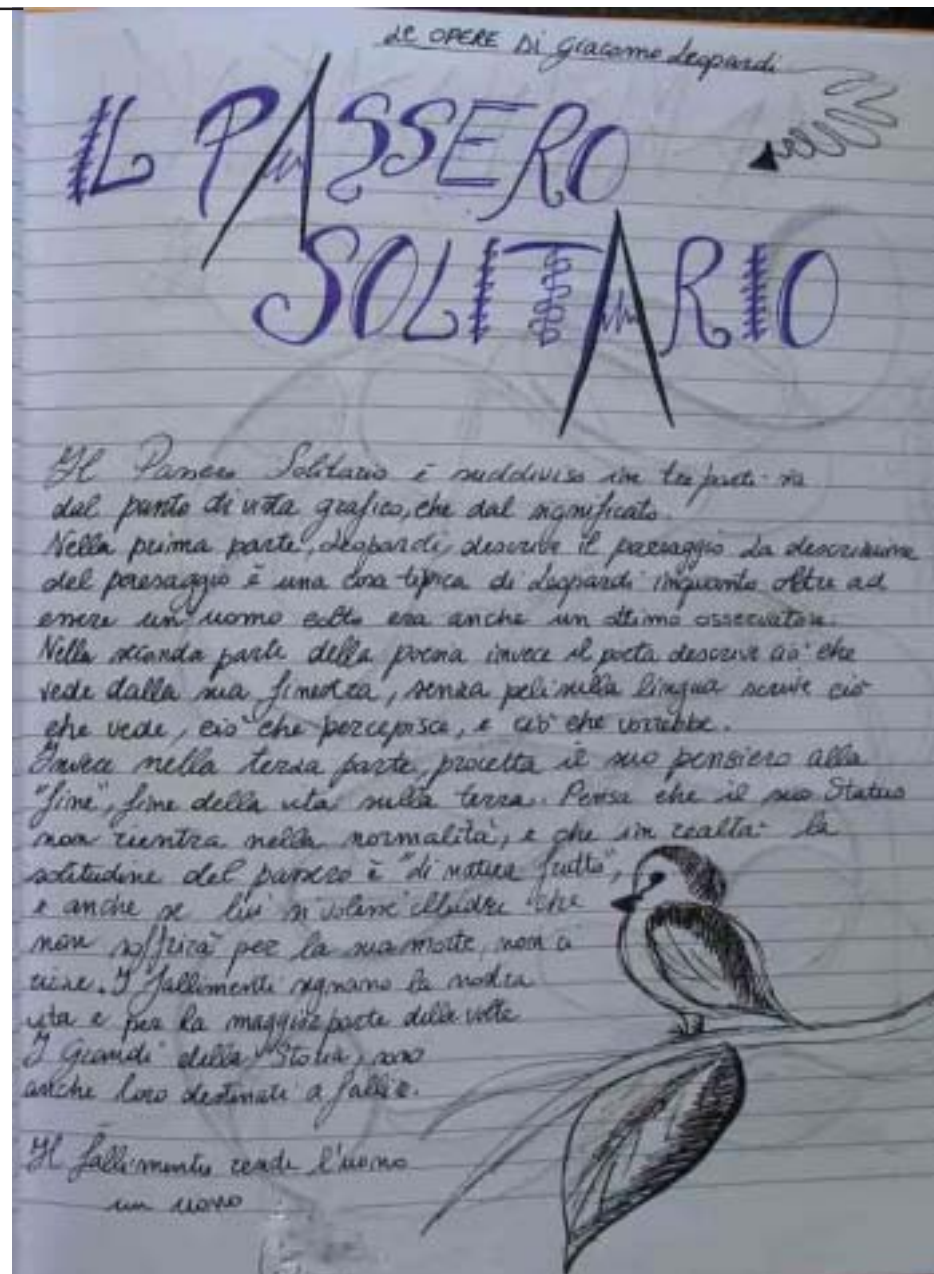 Le OPERE Di Giacomo Leopardi
IL PASSERO
SOLITARIO
Il Passero Solitario è suddiviso in tre parti sia
dal punto di vista grafico, che dal significato.
Nella prima parte, Leopardi, descrive il paesaggio La descrizione
del paesaggio è una cosa tipica di Leopardi inquanto oltre ad
essere un uomo colto era anche un ottimo osservatore.
Nella seconda parte della poesia invece il poeta descrive ciò che
vede dalla sua finestra, senza peli sulla lingua scrive ciò
che vede, ciò che percepisce, e ciò che vorrebbe.
Invece nella terza parte, proietta il suo pensiero alla
"fine", fine della vita sulla terra. Pensa che il suo Status
non rientra nella normalità, e che in realtà la
solitudine del passero è "di natura frutto",
e anche se lui si volesse illudere che
non soffrirà per la sua morte, non ci
riesce. I fallimenti segnano la nostra
vita e per la maggior parte delle volte
I Grandi della Storia, sono
anche loro destinati a fallire.
Il fallimento rende l'uomo
un uomo